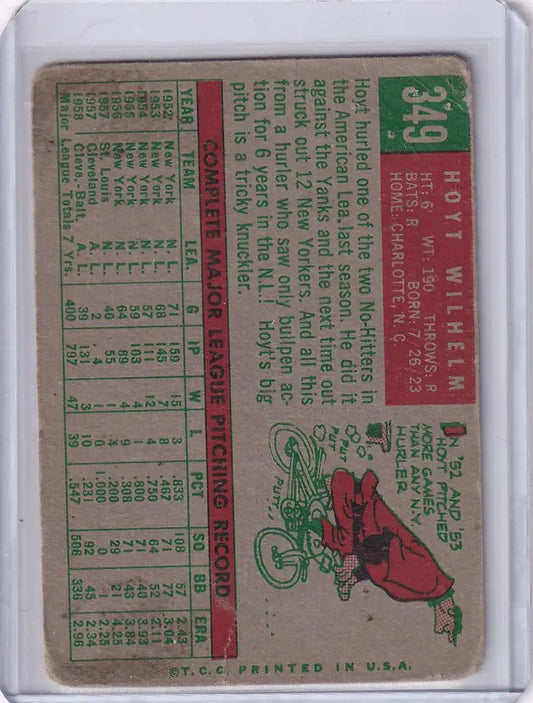 349
HOYT WILHELM
HT: 6' WT: 190 THROWS: R
BATS: R BORN: 7/26/23
HOME: CHARLOTTE, N. C.
Hoyt hurled one of the two No-Hitters in
the American Lea. last season. He did it
against the Yanks and the next time out
struck out 12 New Yorkers. And all this
from a hurler who saw only bullpen ac-
tion for 6 years in the N.L.! Hoyt's big
pitch is a tricky knuckler.
IN '52 AND '53
HOYT PITCHED
MORE GAMES
THAN ANY N.Y.
HURLER.
PUT
PUT
PUT..
COMPLETE MAJOR LEAGUE PITCHING RECORD
YEAR TEAM LEA. G IP W L PCT SO BB ERA
1952 New York N. L. 71 159 15 3 .833 108 57 2.43
1953 New York N. L. 68 145 7 8 .467 71 77 3.04
1954 New York N. L. 57 111 12 4 .750 64 52 2.11
New York N. L. 59 103 4 1 .800 71 40 3.93
1956 New York N. L. 64 89 4 9 71 43 3.84
St. Louis N. L. 40 55 1 4 .200 29 21 4.25
1957 Cleveland A. L. 2 4 1 0 1.000 0 1 2.25
1958 Cleve.-Balt. A. L. 39 131 3 10 .231 92 45 2.34
Major League Totals 7 Yrs. 400 797 47 39 .547 506 336 2.96
© T. C. G. PRINTED IN U.S.A.